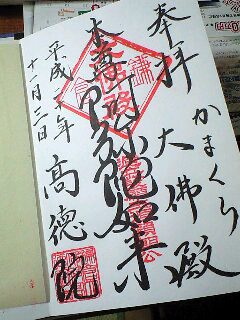 奉拝
かまくら
大佛殿
本尊阿弥陀如来
平成 年
十一月三日
高徳院